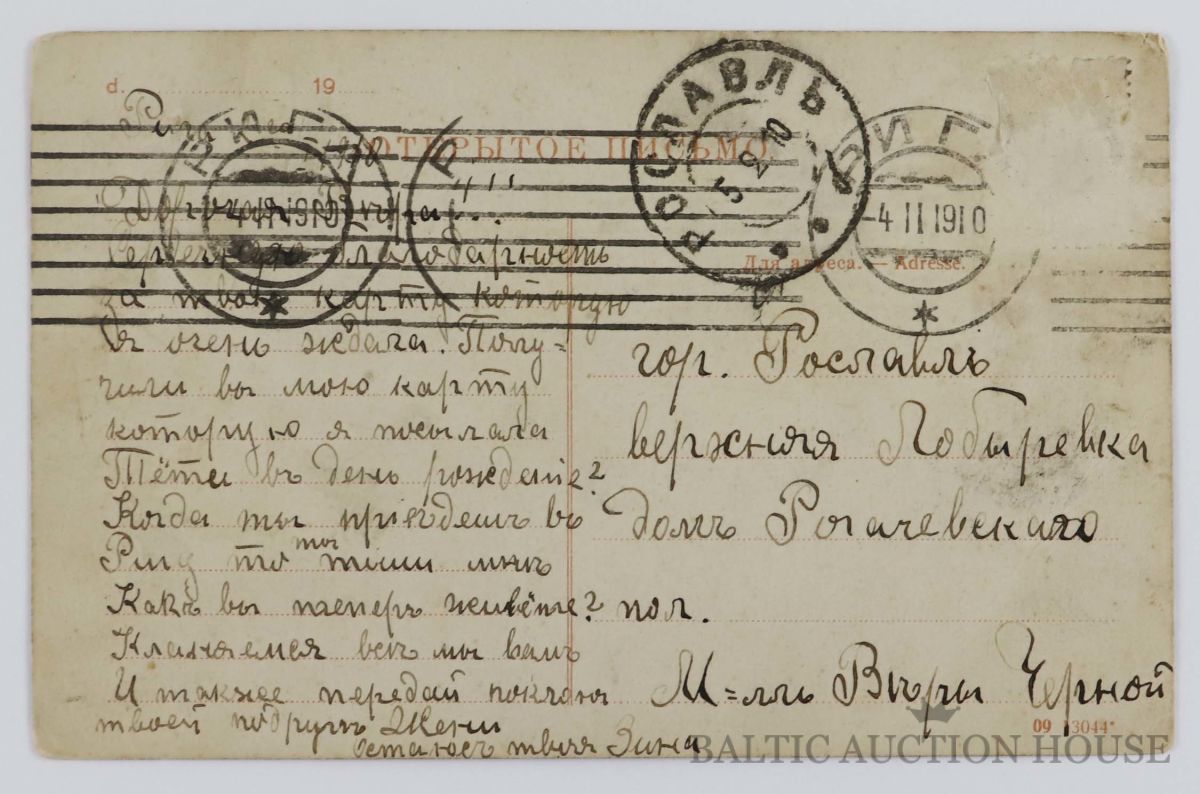 d. 19
Рига
ОТКРЫТОЕ ПИСЬМО.
РОСЛАВЛЬ
5 2 10
РИГА
-4 II 1910
РИГ
-4 II 1910
Для адреса. — Adresse.
Дорогая
Сердечную благодарность
за твою карту которую
я очень ждала. Полу=
чили вы мою карту
которую я посылала
Тёти въ день рожденіе?
Когда ты пріѣдешъ въ
Ригу то ты пиши мнѣ
Какъ вы теперъ живёте?
Кланяемся всѣ мы вамъ
И также передай поклонъ
твоей подругѣ Жени
остаюсъ твоя Зина
гор. Рославль
верхняя Лобыревка
домъ Рогачевскаго
пол.
М=лль Вѣры Черной
09 13044*
BALTIC AUCTION HOUSE